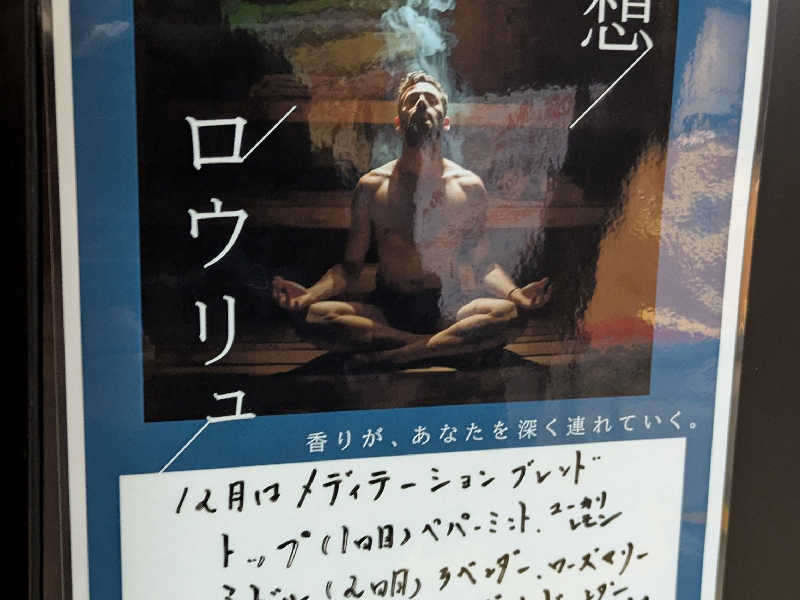 想
ロウリュ
香りが、あなたを深く連れていく。
12月は メディテーション ブレンド
トップ (1回目) ペパーミント、ユーカリ
レモン
ミドル (2回目) ラベンダー、ローズマリー